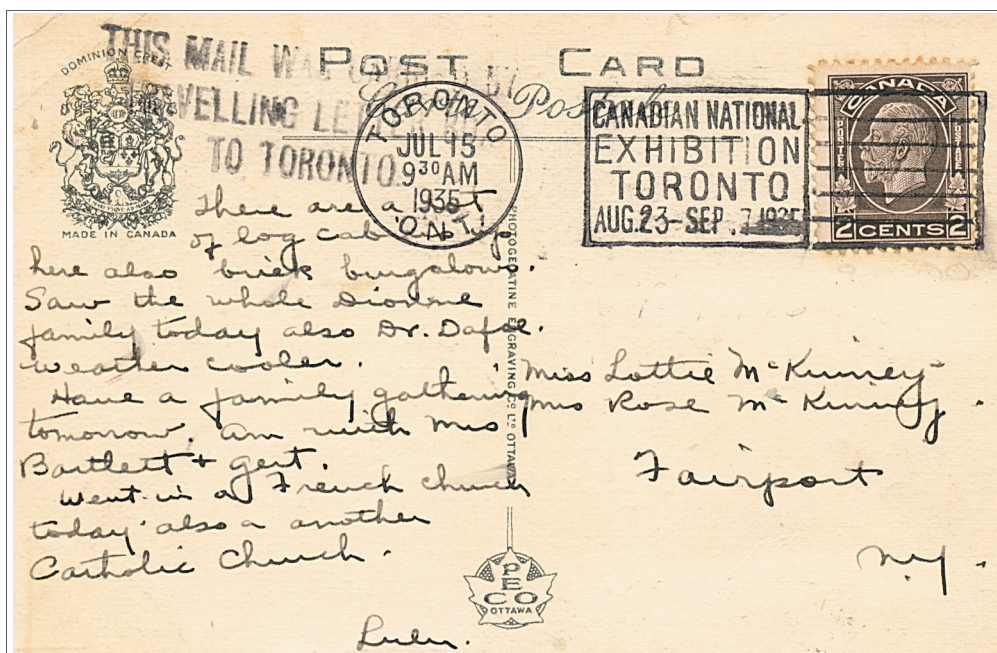 POST CARD
THIS MAIL WAS
VELLING LET
TO TORONTO.
DOMINION CREST
MADE IN CANADA
TORONTO
JUL 15
9 30 AM
1935
ONT.
CANADIAN NATIONAL
EXHIBITION
TORONTO
AUG. 23 - SEP. 7 1935
CANADA
POSTAGE POSTES
2 CENTS 2
There are a lot
of log cab
here also brick bungalows.
Saw the whole Dionne
family today also Dr. Dafoe.
weather cooler.
Have a family gathering
tomorrow. Am with Mrs
Bartlett + Gert.
Went in a French church
today also a another
Catholic Church.
Lulu.
PHOTOGELATINE ENGRAVING Co LTD OTTAWA
Miss Lottie McKinney
Mrs Rose McKinney.
Fairport
N.Y.
PECO
OTTAWA